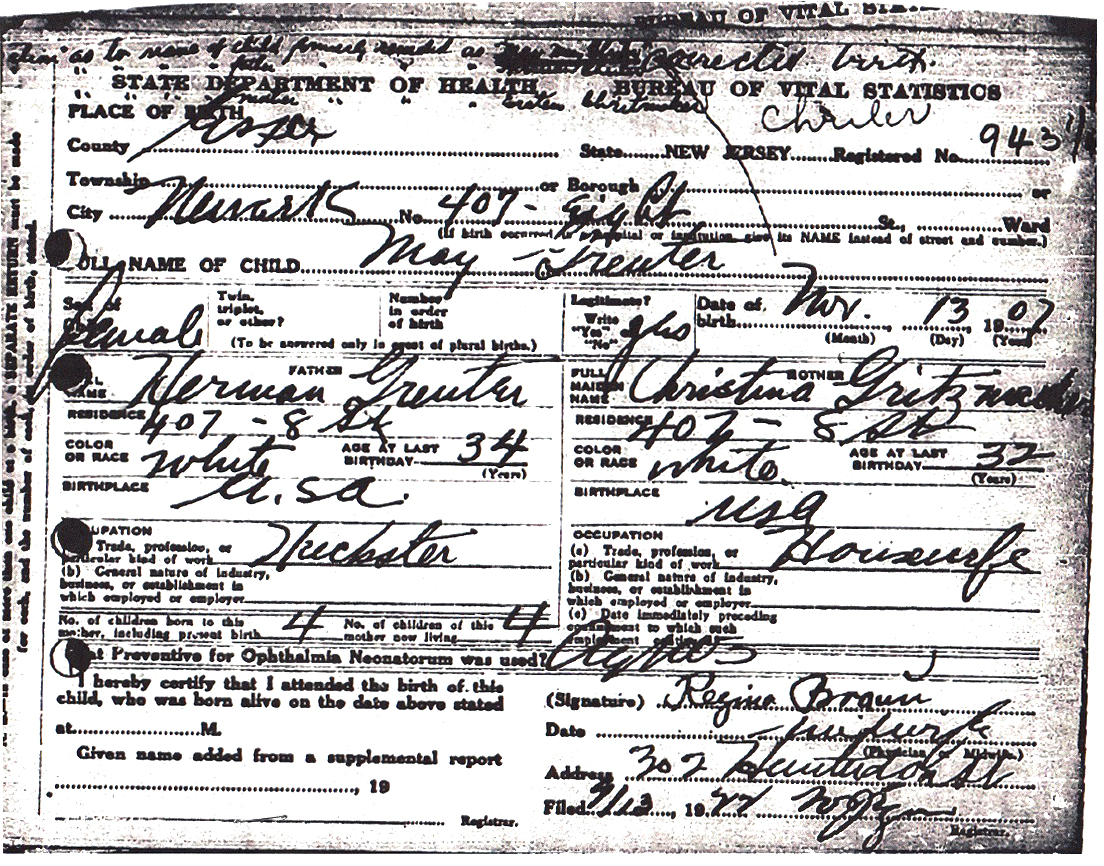 BUREAU OF VITAL
as to name of child formerly recorded as corrected birth.
STATE DEPARTMENT OF HEALTH BUREAU OF VITAL STATISTICS
PLACE OF BIRTH
County Essex State NEW JERSEY Registered No. 943
Township or Borough or
City Newark No. 407- Eight St., Ward
(If birth occurred in a hospital or institution give its NAME instead of street and number.)
FULL NAME OF CHILD May Greuter
Sex of Female
Twin, triplet, or other?
Number in order of birth
(To be answered only in event of plural births.)
Legitimate? Write "Yes" "No" yes
Date of birth Nov. 13 1907
(Month) (Day) (Year)
FATHER
NAME Herman Greuter
RESIDENCE 407 - 8 St
COLOR OR RACE white AGE AT LAST BIRTHDAY 34
(Years)
BIRTHPLACE U.S.A.
OCCUPATION
Trade, profession, or particular kind of work Huckster
(b) General nature of industry, business, or establishment in which employed or employer
MOTHER
FULL MAIDEN NAME Christina Gritzmacher
RESIDENCE 407 - 8 St
COLOR OR RACE white AGE AT LAST BIRTHDAY 32
(Years)
BIRTHPLACE USA
OCCUPATION
(a) Trade, profession, or particular kind of work Housewife
(b) General nature of industry, business, or establishment in which employed or employer
(c) Date immediately preceding to which such
No. of children born to this mother, including present birth 4 No. of children of this mother now living 4
Preventive for Ophthalmia Neonatorum was used?
I hereby certify that I attended the birth of this
child, who was born alive on the date above stated
at M.
Given name added from a supplemental report
, 19
Registrar.
(Signature) Regina Braun
Date midwife
(Physician or Midwife.)
Address 302 Hunterdon St
Filed 9/13, 19
Registrar.
in case of more than one child at a birth, a SEPARATE RETURN must be made
for each, and the number of each, in order of birth, stated.